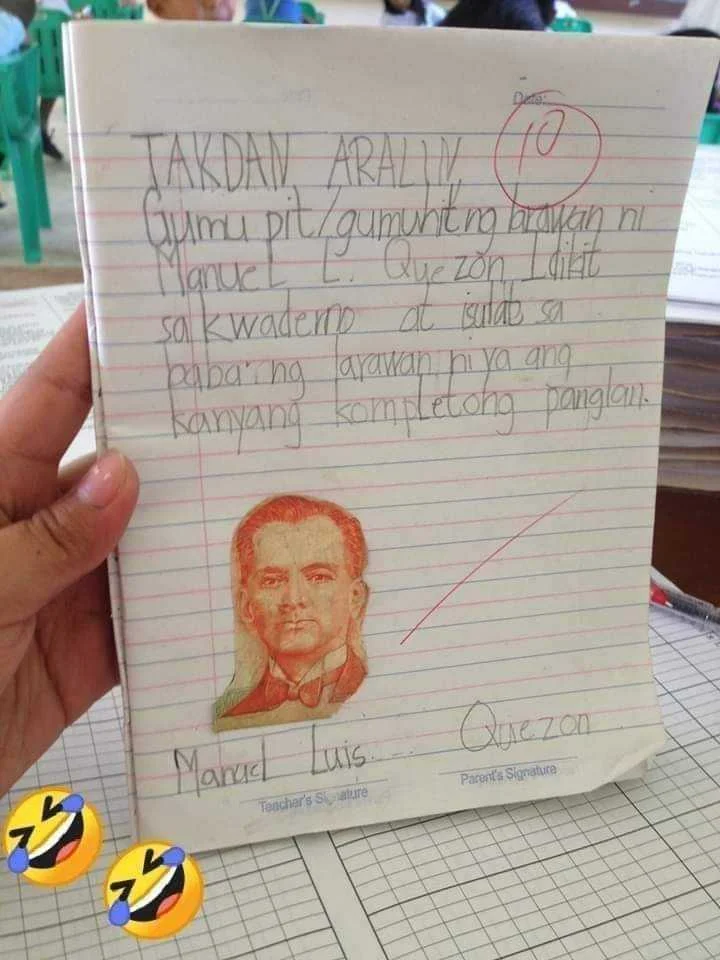 Date:
10
TAKDAN ARALIN
Gumupit/gumuhit ng larawan ni
Manuel L. Quezon Idikit
sa kwaderno at isulat sa
baba ng larawan niya ang
kanyang kompletong panglan.
Manuel Luis Quezon
Teacher's Signature Parent's Signature